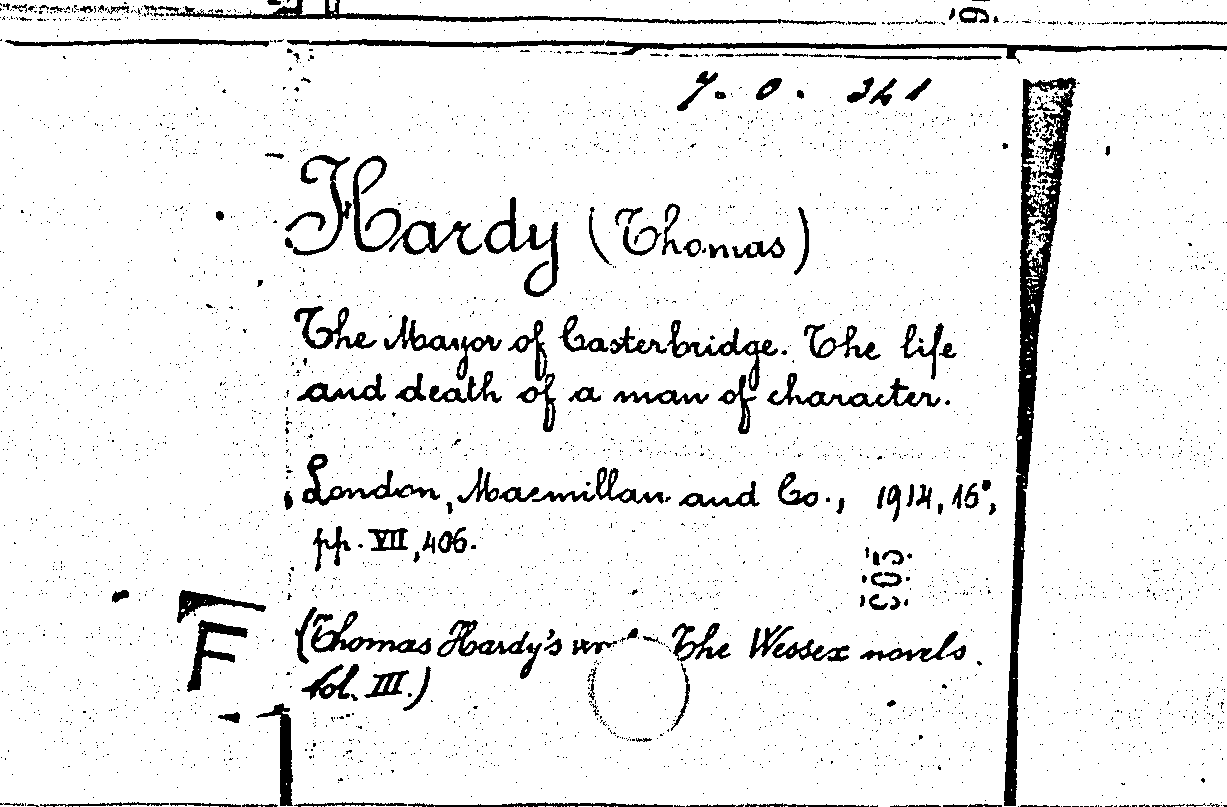 7. 0. 321
Hardy (Thomas)
The Mayor of Casterbridge. The life
and death of a man of character.
London, Macmillan and Co., 1914, 16°,
pp. VII, 406.
F
(Thomas Hardy's The Wessex novels.
Vol. III.)